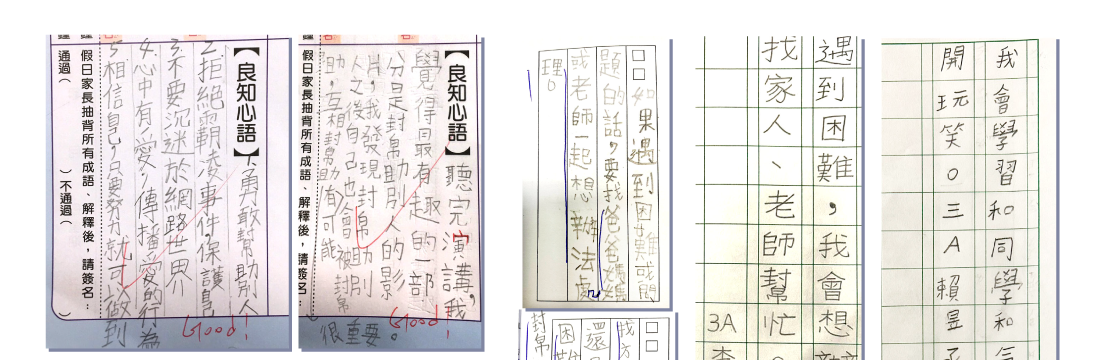 【良知心語】1.勇敢幫助別人
2.拒絕霸凌事件,保護自
3.不要沉迷於網路世界
4.心中有愛,傳播愛的行為
5.相信自己,只要努力就可以做到
Good!
假日家長抽背所有成語、解釋後,請簽名:
通過( )不通過( )
【良知心語】聽完演講,我
覺得最有趣的一部
分是封幫助別人的影
片,我發現封幫助別
人之後自己也會被封幫
助,互相封幫助有可能
很重要。
Good!
假日家長抽背所有成語、解釋後,請簽名:
□□如果遇到困難或問
題的話,要找爸爸媽媽
或老師一起想辦法處
理。
□□
我方
還
困難
封幫
遇到困難,我會想
找家人、老師幫忙。
3A
李
我會學習和同學和
開玩笑。三A賴昱